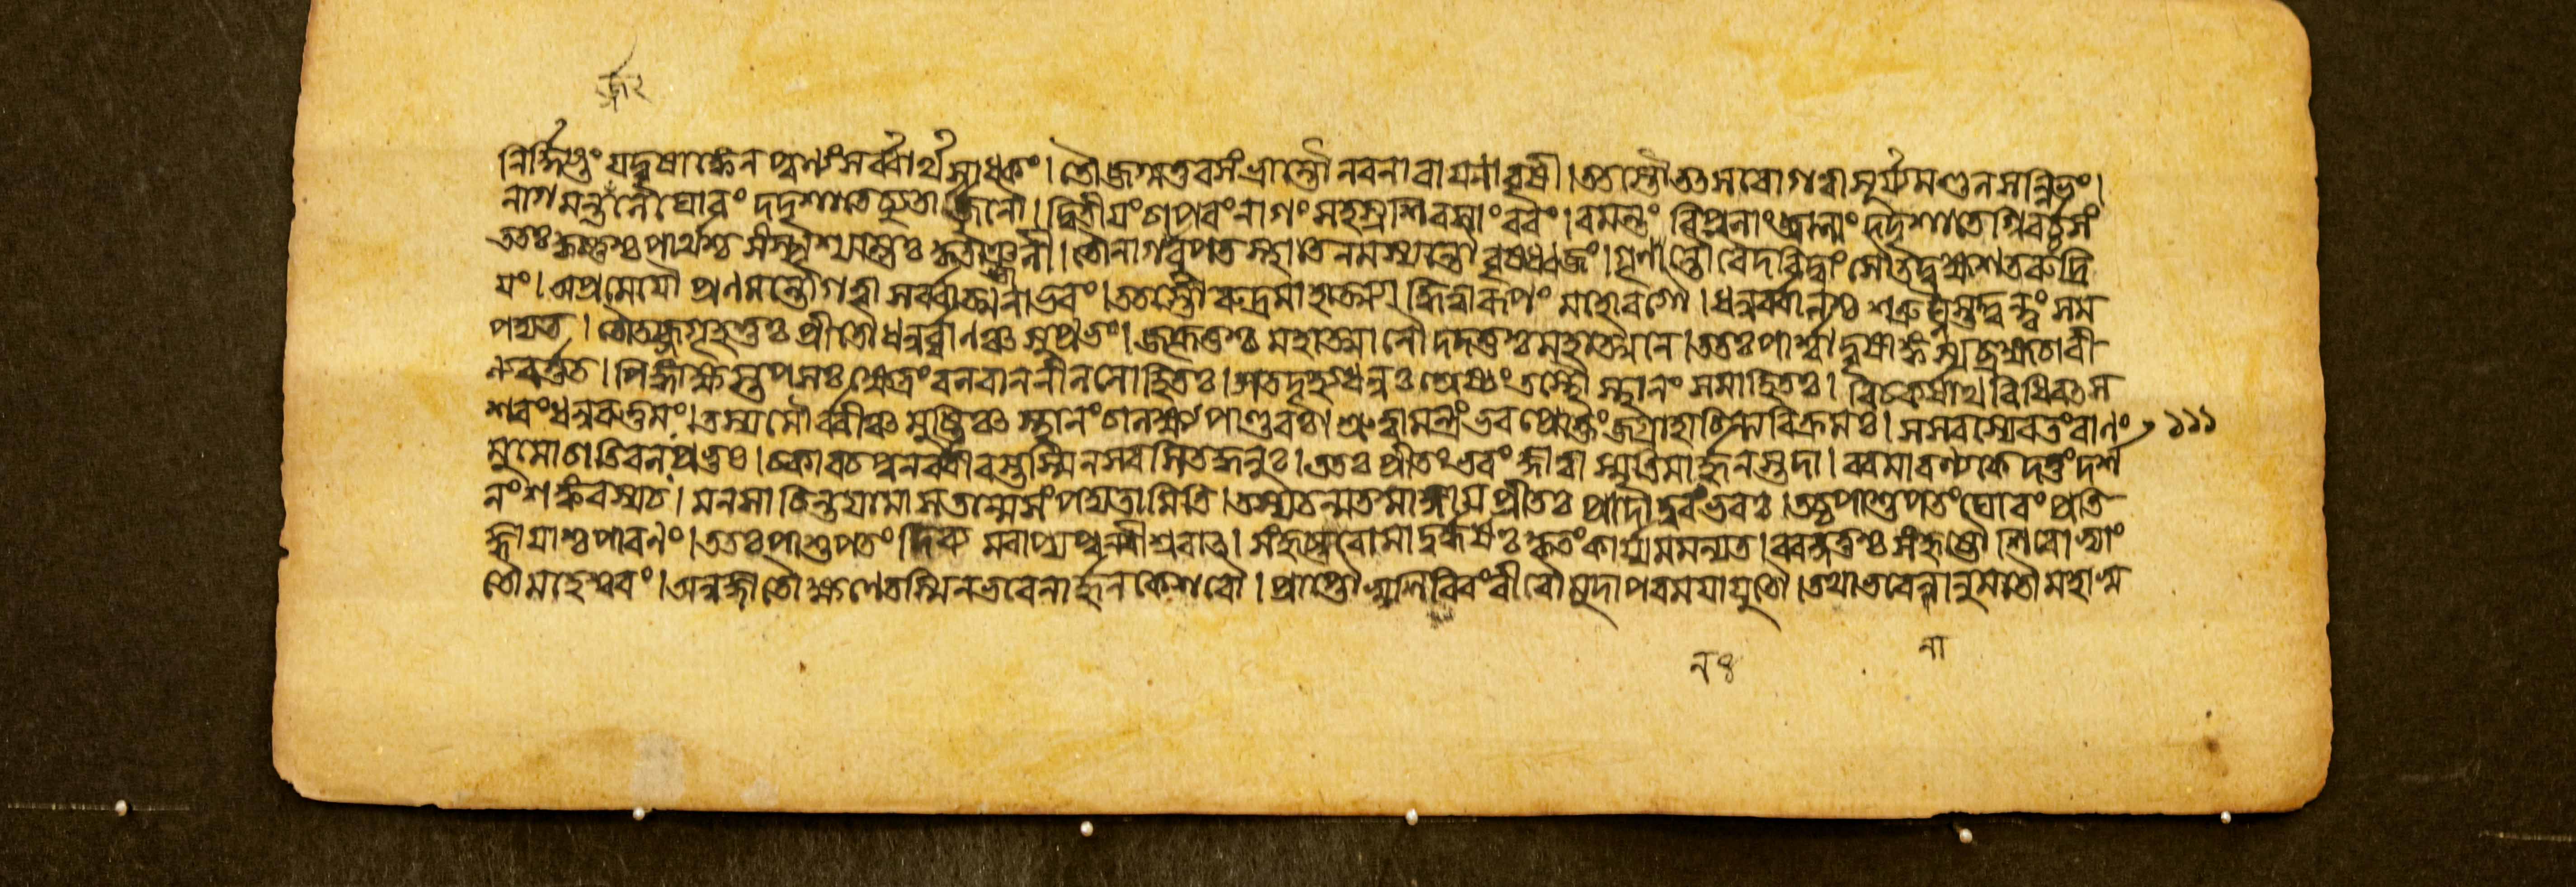 র্জ্জ ২
নির্দ্দিষ্টং যদ্বৃষাঙ্কেন পুণ্যং সর্ব্বার্থসাধকং। তৌ জগ্মতুরসংভ্রান্তৌ নরনারায়ণাবৃষী। ততস্তৌ তু সরো গত্বা সূর্য্যমণ্ডলসন্নিভং।
নাগমন্তর্জলে ঘোরং দদৃশাতেচ্যুতার্জ্জুনৌ। দ্বিতীয়ং চাপরং নাগং সহস্রশিরসাং বরং। বমন্তং বিপুলাং জ্বালাং দদৃশাতেগ্নিবর্চ্চসং
ততঃ কৃষ্ণশ্চ পার্থশ্চ সংস্পৃশ্যাম্ভঃ কৃতাঞ্জলী। তৌ নাগাবুপতস্থাতে নমস্যন্তৌ বৃষধ্বজং। গৃণন্তৌ বেদবিদ্বাংসৌ তদ্ব্রহ্ম শতরুদ্রি
য়ং। অপ্রমেয়ৌ প্রণমন্তৌ গত্বা সর্ব্বাত্মনা ভবং। ততস্তৌ রুদ্রমাহাত্ম্যা দ্ধিত্বা রূপং মহোরগৌ। ধনুর্ব্বাণশ্চ শত্রুঘ্নস্তদ্দ্বন্দ্বং সম
পদ্যত। তৌ তজ্জগৃহতুঃ প্রীতৌ ধনুর্ব্বাণঞ্চ সুপ্রভং। জহ্রতুশ্চ মহাত্মানৌ দদতুশ্চ মহাত্মনে। ততঃ পার্শ্বাদ্বৃষাঙ্কস্য ব্রহ্মচারী
ন্যবর্ত্তত। পিঙ্গাক্ষস্তপসঃ ক্ষেত্রং বলবান নীললোহিতঃ। স তদ্গৃহ্য ধনুঃ শ্রেষ্ঠং তস্থৌ স্থানং সমাহিতঃ। বিচকর্ষাথ বিধিবৎ স
শরং ধনুরুত্তমং। তস্য মৌর্ব্বীঞ্চ মুষ্টিঞ্চ স্থানং চালক্ষ্য পাণ্ডবঃ। শ্রুত্বা মন্ত্রং ভবপ্রোক্তং জগ্রাহাচিন্ত্যবিক্রমঃ। স সরস্যেব তং বাণং ১১১
মুমোচাতিবলঃ প্রভুঃ। চকার চ পুনর্ব্বীরস্তস্মিন সরসি তদ্ধনুঃ। ততঃ প্রীতং ভবং জ্ঞাত্বা স্মৃতিমানর্জ্জুনস্তদা। বরমারণ্যকে দত্তং দর্শ
নং শঙ্করস্য চ। মনসা চিন্তয়ামাস তন্মে সংপদ্যতামিতি। তস্য তন্মতমাজ্ঞায় প্রীতঃ প্রাদাদ্বরং ভবঃ। তচ্চ পাশুপতং ঘোরং প্রতি
জ্ঞায়াশ্চ পারণং। ততঃ পাশুপতং দিব্য মবাপ্য পুনরীশ্বরাৎ। সংহৃষ্টরোমা দুর্দ্ধর্ষঃ কৃতং কার্য্যমমন্যত। ববন্দতুশ্চ সংহৃষ্টৌ শিরোভ্যাং
তৌ মহেশ্বরং। অনুজ্ঞাতৌ ক্ষণে তস্মিন ভবেনার্জ্জুনকেশবৌ। প্রাপ্তৌ স্বশিবিরং বীরৌ মুদা পরময়া যুতৌ। তথা ভবেনানুমতৌ মহাসু
নঃ না